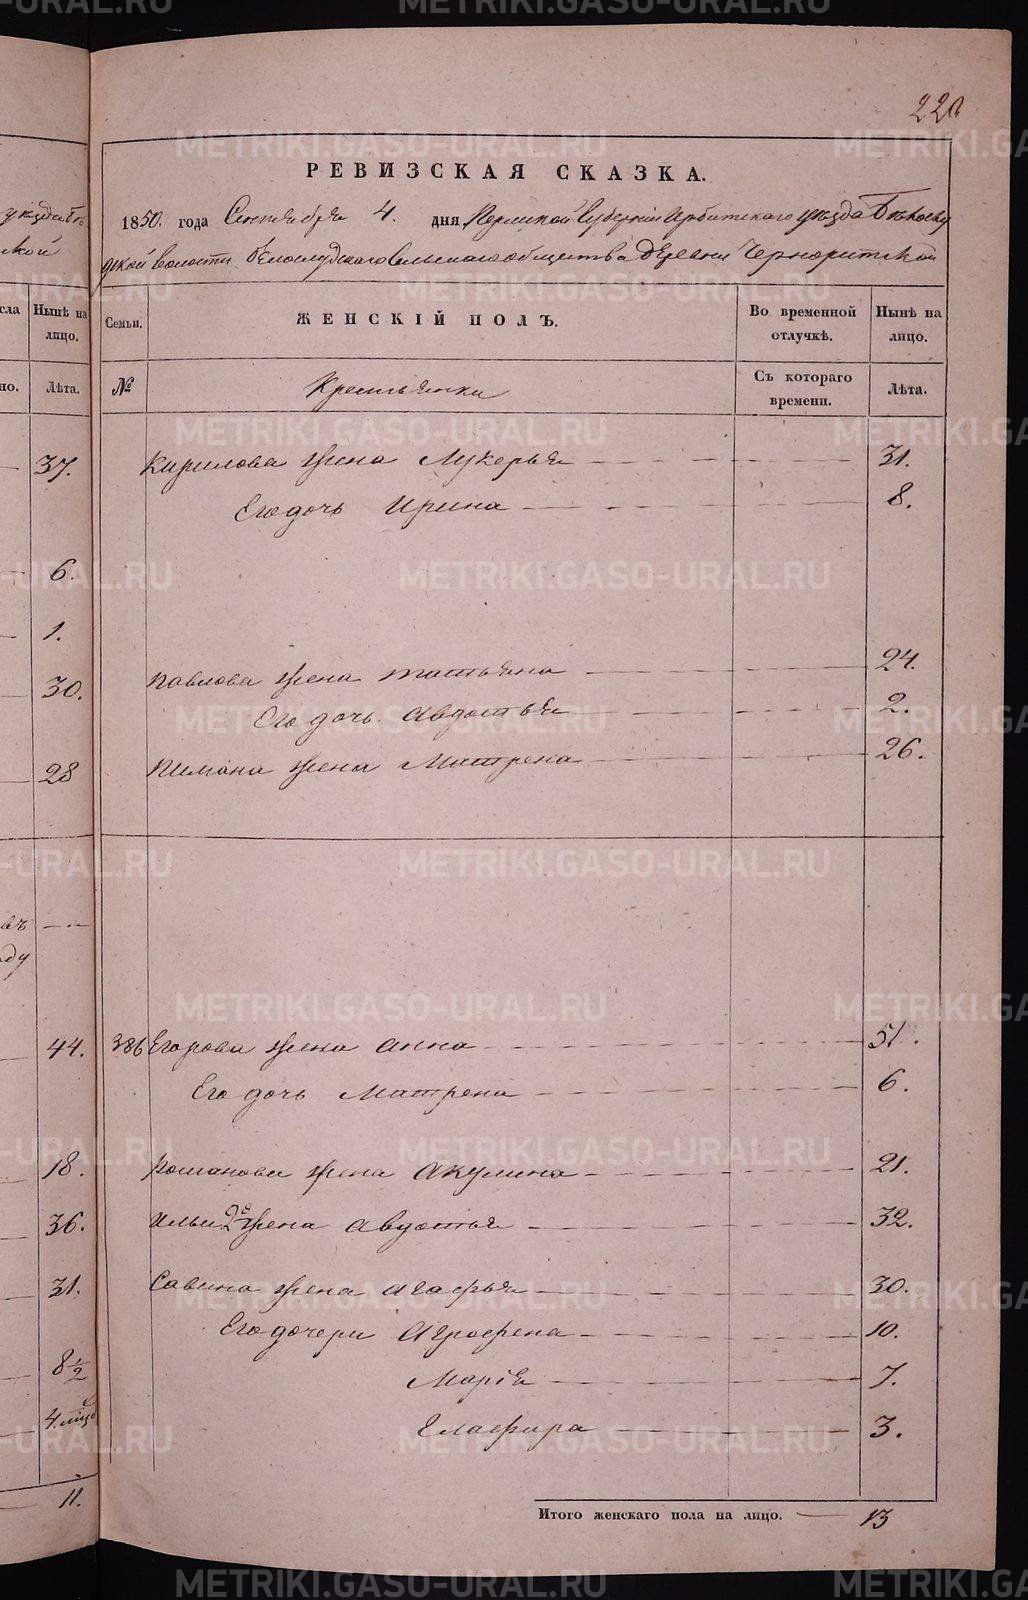 220
РЕВИЗСКАЯ СКАЗКА.
1850. года Сентября 4. дня Пермской Губернии Ирбитскаго уѣзда Бѣлослу
дской волости Бѣлослудскаго сельскаго общества Деревни Черноритской
Семьи. ЖЕНСКІЙ ПОЛЪ. Во временной отлучкѣ. Нынѣ на лицо.
№ Крестьянки Съ котораго времени. Лѣта.
Кирилова жена Лукерья 31.
Его дочь Ирина 8.
Павлова жена Татьяна 24.
Его дочь Авдотья 2.
Пимана жена Матрена 26.
386 Егорова жена Анна 51.
Его дочь Матрена 6.
Романова жена Акулина 21.
Ильи 2я жена Авдотья 32.
Савина жена Агафья 30.
Его дочери Агрофена 10.
Марія 7.
Глафира 3.
Итого женскаго пола на лицо. 13
уѣзда Бѣ
ской
сла Нынѣ на лицо.
но. Лѣта.
37.
6.
1.
30.
28
въ
ду
44.
18.
36.
31.
8½
4.
11.
METRIKI.GASO-URAL.RU